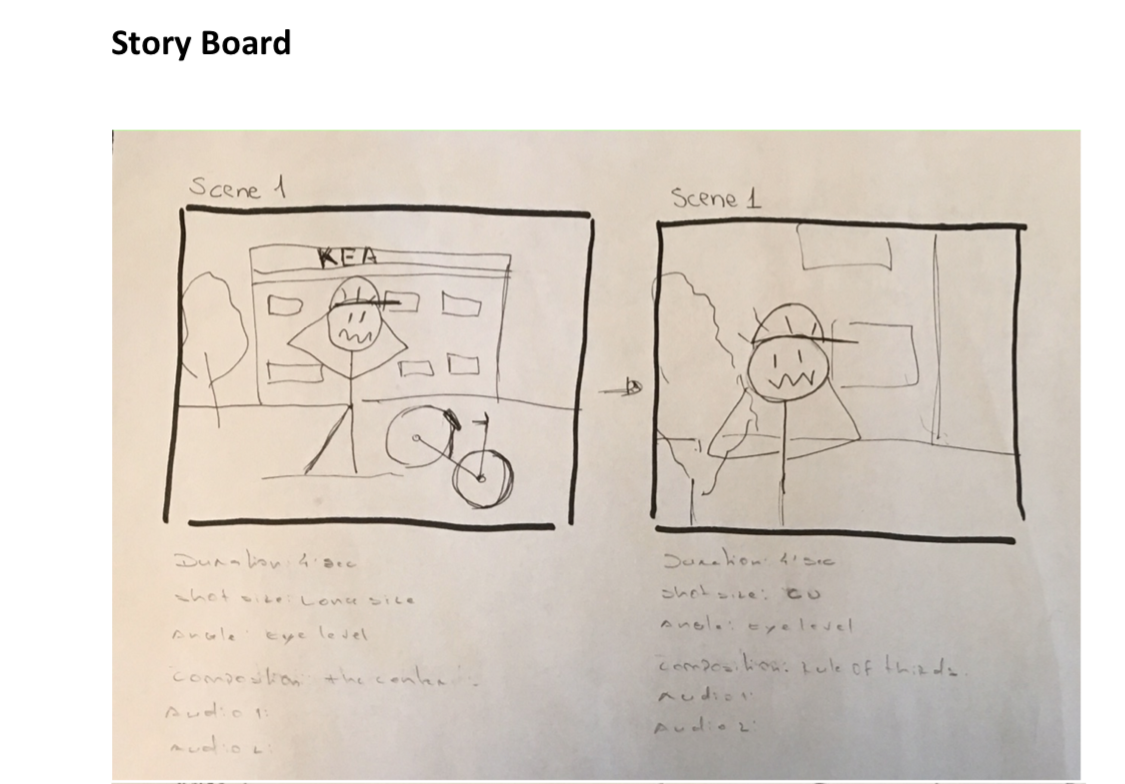 Story Board
Scene 1
KEA
Duration: 4 sec
Shot size: Long size
Angle: Eye level
Composition: the center
Audio 1:
Audio 2:
Scene 1
Duration: 4 sec
Shot size: CU
Angle: Eye level
Composition: Rule of thirds.
Audio 1:
Audio 2: